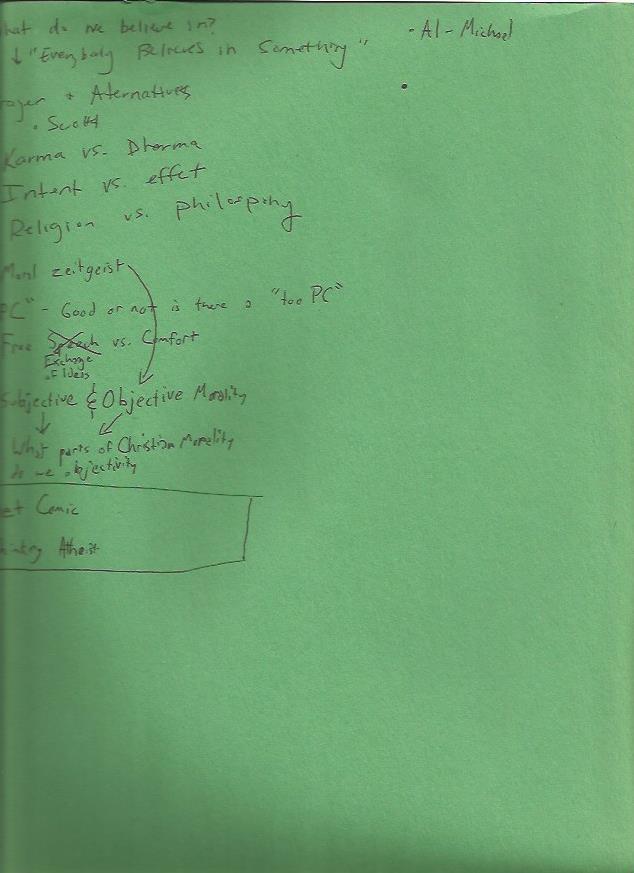 hat do we believe in?
- Al - Michael
↓ "Everybody Believes in Something"
rayer + Aternatives
• Scott
Karma vs. Dharma
Intent vs. effet
Religion vs. philosophy
Moral zeitgeist
PC" - Good or not is there a "too PC"
Free Speech vs. Comfort
Exchange
of Ideas
Subjective & Objective Morality
What parts of Christian Morality
do we objectivity
et Comic
hinking Atheist